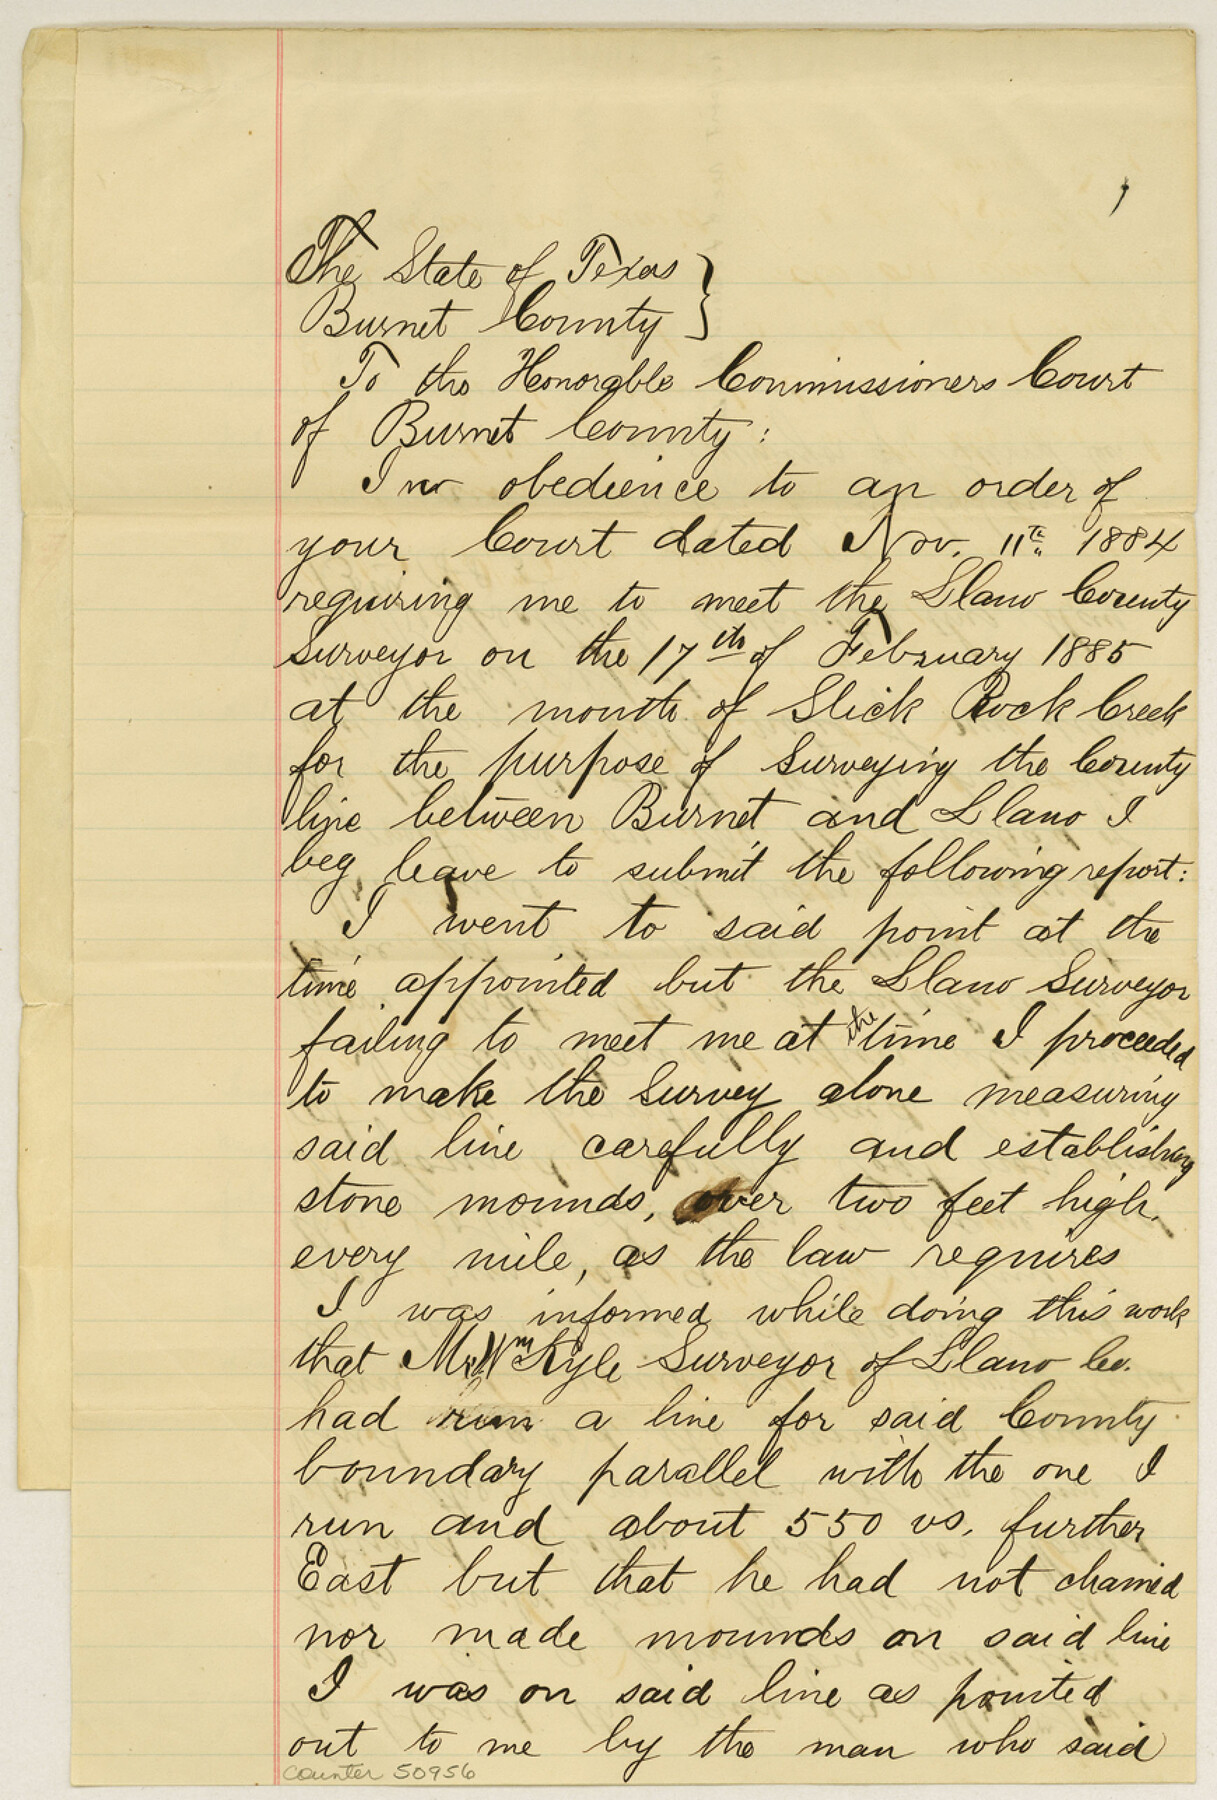 The State of Texas }
Burnet County }
To the Honorable Commissioners Court
of Burnet County :
In obedience to an order of
your Court dated Nov. 11th 1884
requiring me to meet the Llano County
Surveyor on the 17th of February 1885
at the mouth of Slick Rock Creek
for the purpose of surveying the County
line between Burnet and Llano I
beg leave to submit the following report:
I went to said point at the
time appointed but the Llano Surveyor
failing to meet me at the time I proceeded
to make the Survey alone measuring
said line carefully and establishing
stone mounds, over two feet high,
every mile, as the law requires
I was informed while doing this work
that Mr Wm Kyle Surveyor of Llano Co.
had run a line for said County
boundary parallel with the one I
run and about 550 vs. further
East but that he had not chained
nor made mounds on said line
I was on said line as pointed
out to me by the man who said
counter 50956